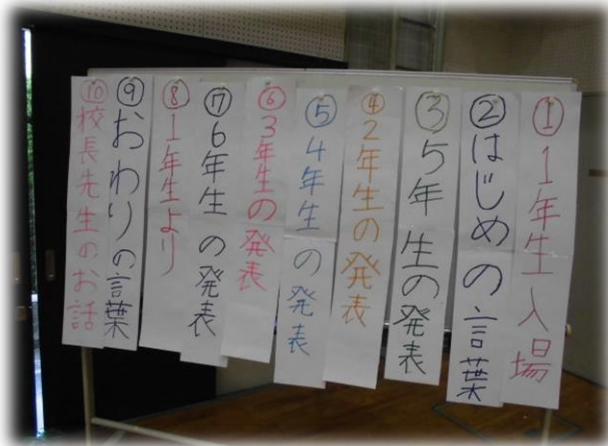 ①1年生入場
②はじめの言葉
③5年生の発表
④2年生の発表
⑤4年生の発表
⑥3年生の発表
⑦6年生の発表
⑧1年生より
⑨おわりの言葉
⑩校長先生のお話